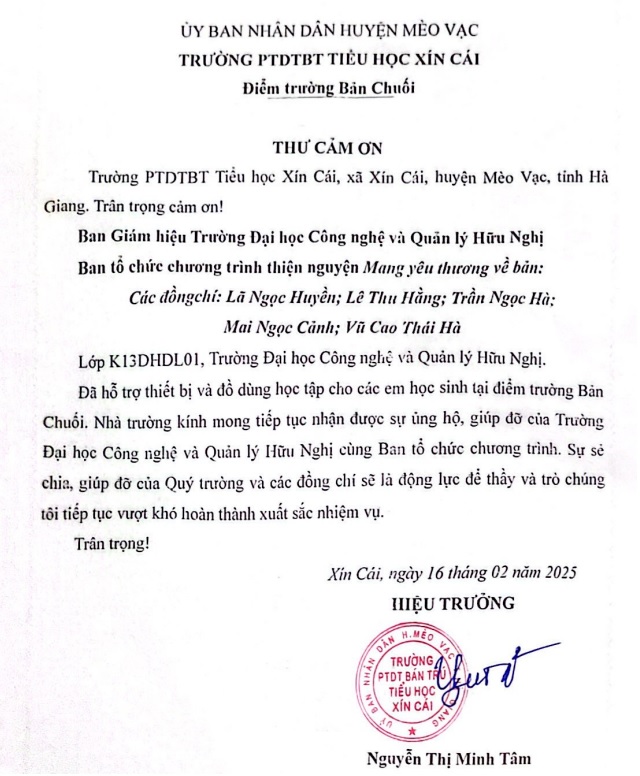 ỦY BAN NHÂN DÂN HUYỆN MÈO VẠC
TRƯỜNG PTDTBT TIỂU HỌC XÍN CÁI
Điểm trường Bản Chuối
THƯ CẢM ƠN
Trường PTDTBT Tiểu học Xín Cái, xã Xín Cái, huyện Mèo Vạc, tỉnh Hà
Giang. Trân trọng cảm ơn!
Ban Giám hiệu Trường Đại học Công nghệ và Quản lý Hữu Nghị
Ban tổ chức chương trình thiện nguyện Mang yêu thương về bản:
Các đồngchí: Lã Ngọc Huyền; Lê Thu Hằng; Trần Ngọc Hà;
Mai Ngọc Cảnh; Vũ Cao Thái Hà
Lớp K13DHDL01, Trường Đại học Công nghệ và Quản lý Hữu Nghị.
Đã hỗ trợ thiết bị và đồ dùng học tập cho các em học sinh tại điểm trường Bản
Chuối. Nhà trường kính mong tiếp tục nhận được sự ủng hộ, giúp đỡ của Trường
Đại học Công nghệ và Quản lý Hữu Nghị cùng Ban tổ chức chương trình. Sự sẻ
chia, giúp đỡ của Quý trường và các đồng chí sẽ là động lực để thầy và trò chúng
tôi tiếp tục vượt khó hoàn thành xuất sắc nhiệm vụ.
Trân trọng!
Xín Cái, ngày 16 tháng 02 năm 2025
HIỆU TRƯỞNG
ỦY BAN NHÂN DÂN H.MÈO VẠC
TRƯỜNG
PTDT BÁN TRÚ
TIỂU HỌC
XÍN CÁI
Nguyễn Thị Minh Tâm